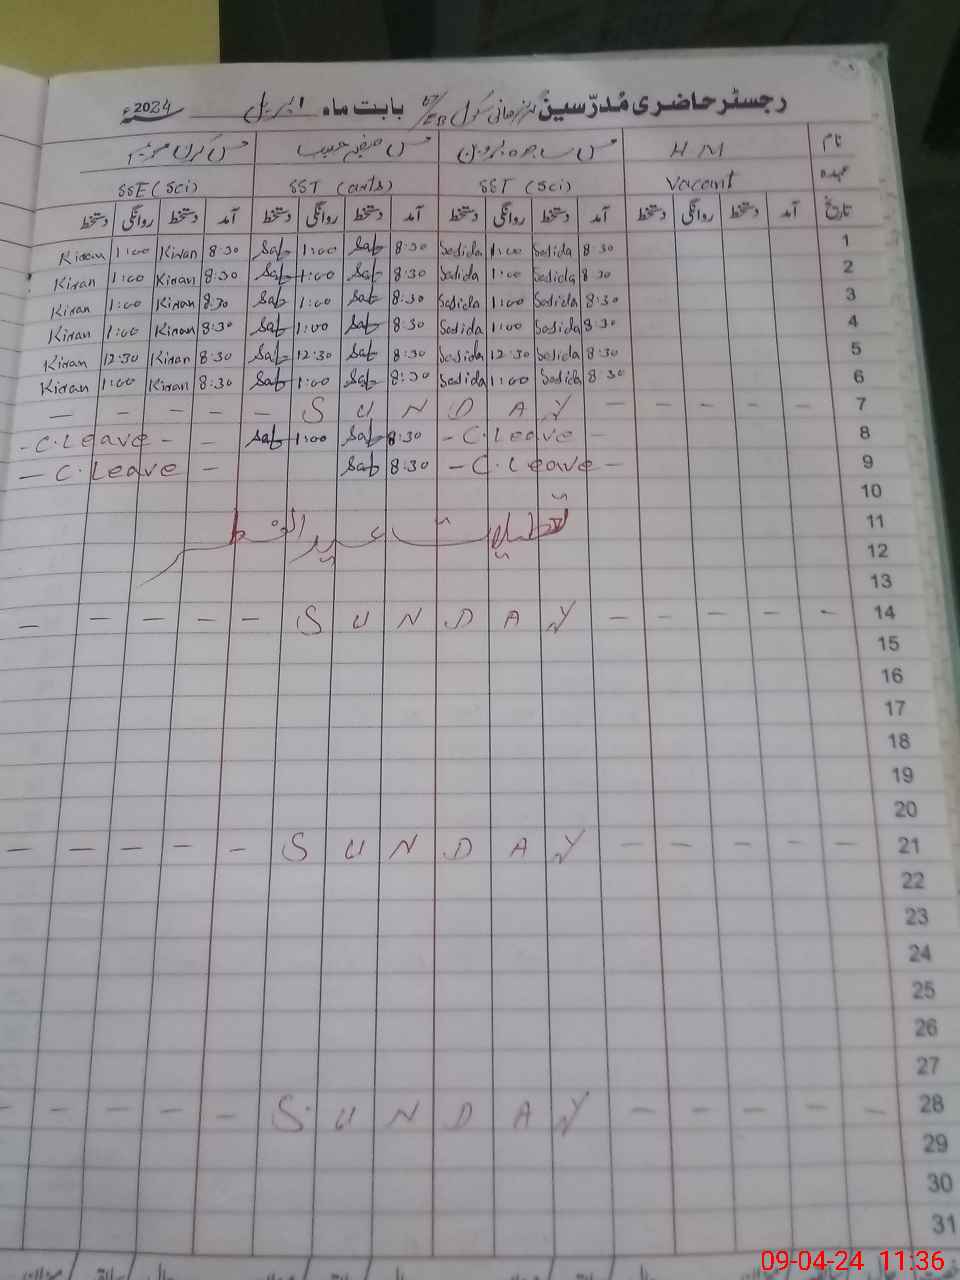 رجسٹر حاضری مُدرّسین گرلز ہائی سکول 67/EB بابت ماہ اپریل 2024ء
نام H M مس ساجدہ پروین مس صفیہ حبیب مس کرن
عہدہ Vacant SST (Sci) SST (arts) SSE (Sci)
تاریخ آمد دستخط روانگی دستخط آمد دستخط روانگی دستخط آمد دستخط روانگی دستخط آمد دستخط روانگی دستخط
Kiran 1:00 Kiran 8:30 Saf 1:00 Saf 8:30 Sadida 1:00 Sadida 8:30 1
Kiran 1:00 Kiran 8:30 Saf 1:00 Saf 8:30 Sadida 1:00 Sadida 8:30 2
Kiran 1:00 Kiran 8:30 Saf 1:00 Saf 8:30 Sadida 1:00 Sadida 8:30 3
Kiran 1:00 Kiran 8:30 Saf 1:00 Saf 8:30 Sadida 1:00 Sadida 8:30 4
Kiran 12:30 Kiran 8:30 Saf 12:30 Saf 8:30 Sadida 12:30 Sadida 8:30 5
Kiran 1:00 Kiran 8:30 Saf 1:00 Saf 8:30 Sadida 1:00 Sadida 8:30 6
— — — — — S U N D A Y — — — — — 7
- C. Leave - - Saf 1:00 Saf 8:30 - C. Leave - 8
- C. Leave - Saf 8:30 - C. Leave - 9
10
تعطیلات عید الفطر 11
12
13
— — — — — S U N D A Y — — — — — 14
15
16
17
18
19
20
— — — — — S U N D A Y — — — — — 21
22
23
24
25
26
27
— — — — — S U N D A Y — — — — — 28
29
30
31
09-04-24 11:36